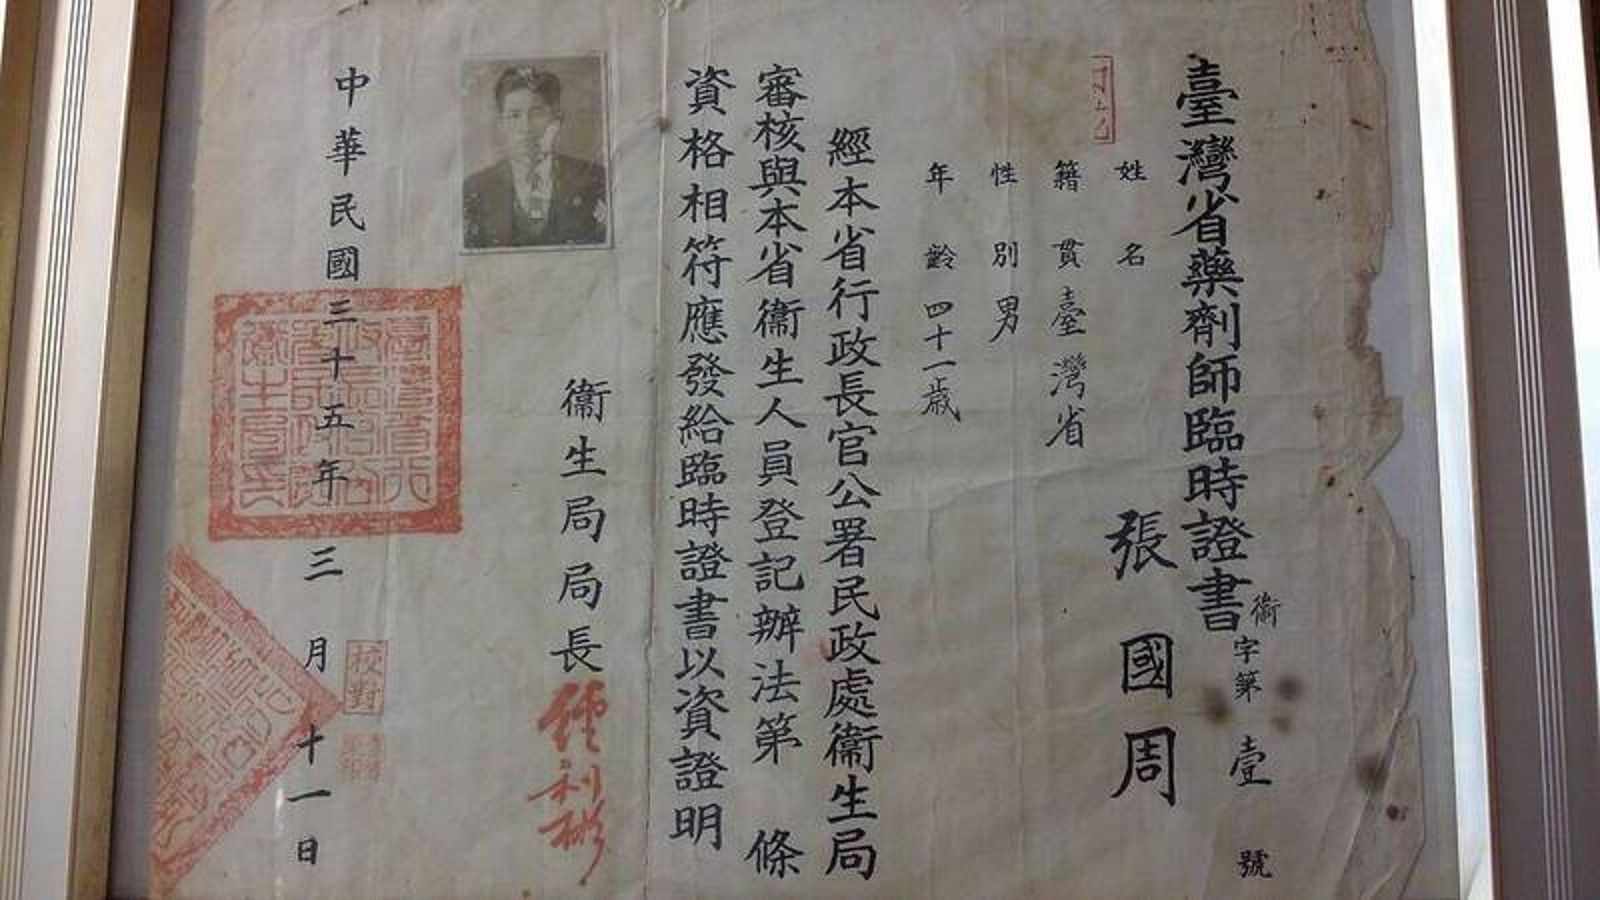 臺灣省藥劑師臨時證書
衞字第壹號
姓名 張國周
籍貫 臺灣省
性別 男
年齡 四十一歲
經本省行政長官公署民政處衞生局
審核與本省衞生人員登記辦法第 條
資格相符應發給臨時證書以資證明
衞生局局長 經利彬
中華民國三十五年三月十一日
校對